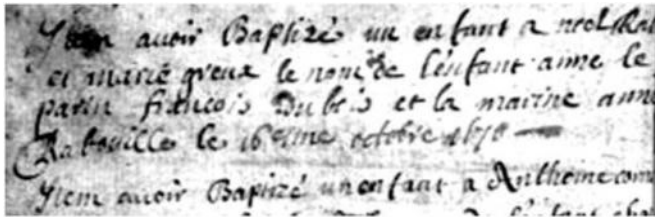 Item avoir Baptizé un enfant a noel Rab
et marie greux le nom de lenfant anne le
parin francois Dubois et la marine anne
Rabouille le 16eme octobre 1678
Item avoir Baptizé un enfant a Anthoine